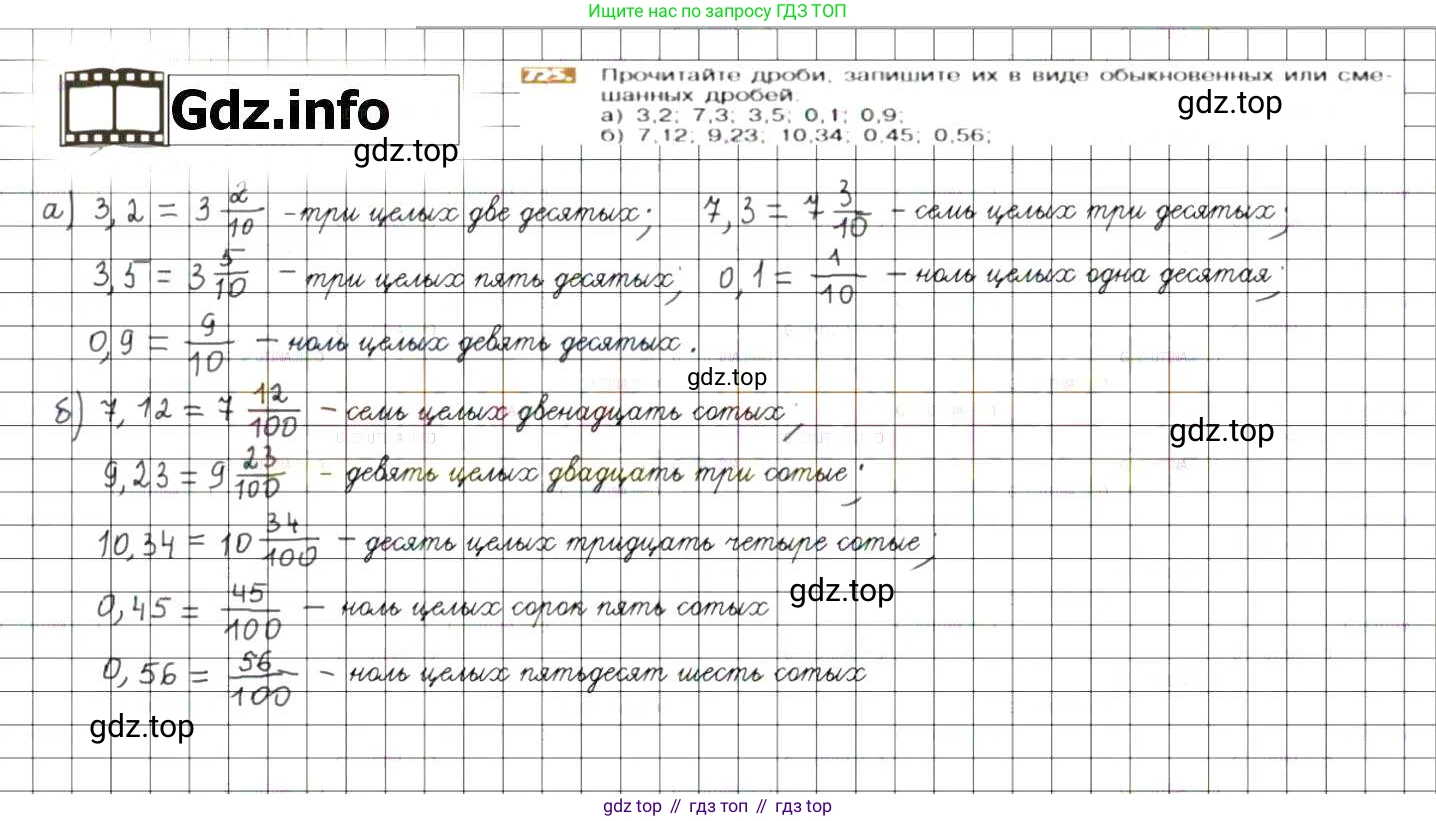 Ищите нас по запросу ГДЗ ТОП
725. Прочитайте дроби, запишите их в виде обыкновенных или сме-
шанных дробей:
а) 3,2; 7,3; 3,5; 0,1; 0,9;
б) 7,12; 9,23; 10,34; 0,45; 0,56;
Gdz.info
gdz.top
gdz.top
а) 3,2 = 3 2/10 - три целых две десятых; 7,3 = 7 3/10 - семь целых три десятых;
3,5 = 3 5/10 - три целых пять десятых; 0,1 = 1/10 - ноль целых одна десятая;
0,9 = 9/10 - ноль целых девять десятых.
gdz.top
б) 7,12 = 7 12/100 - семь целых двенадцать сотых;
gdz.top
9,23 = 9 23/100 - девять целых двадцать три сотые;
10,34 = 10 34/100 - десять целых тридцать четыре сотые;
gdz.top
0,45 = 45/100 - ноль целых сорок пять сотых
0,56 = 56/100 - ноль целых пятьдесят шесть сотых
gdz.top
gdz top // гдз топ // gdz.top